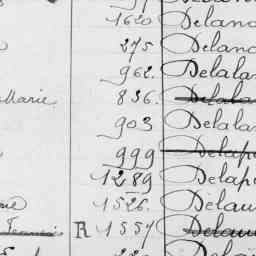 1620 Delano
275 Delano
962. Delala
Marie 836. Delala
903 Delala
999 Delap
1289 Delap
1526. Delau
R 1557 Delau